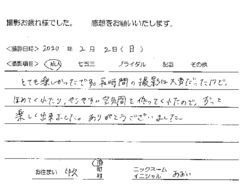 撮影お疲れ様でした。 感想をお願いいたします。
<撮影日時> 2020年 2月 2日(日)
<撮影項目> 成人 七五三 ブライダル 記念 その他
とても楽しかったです。長時間の撮影は大変だったけど、
ほめてくれたり、
楽しく出来ました。ありがとうございました。
お住まい 市町村 ニックネーム
イニシャル